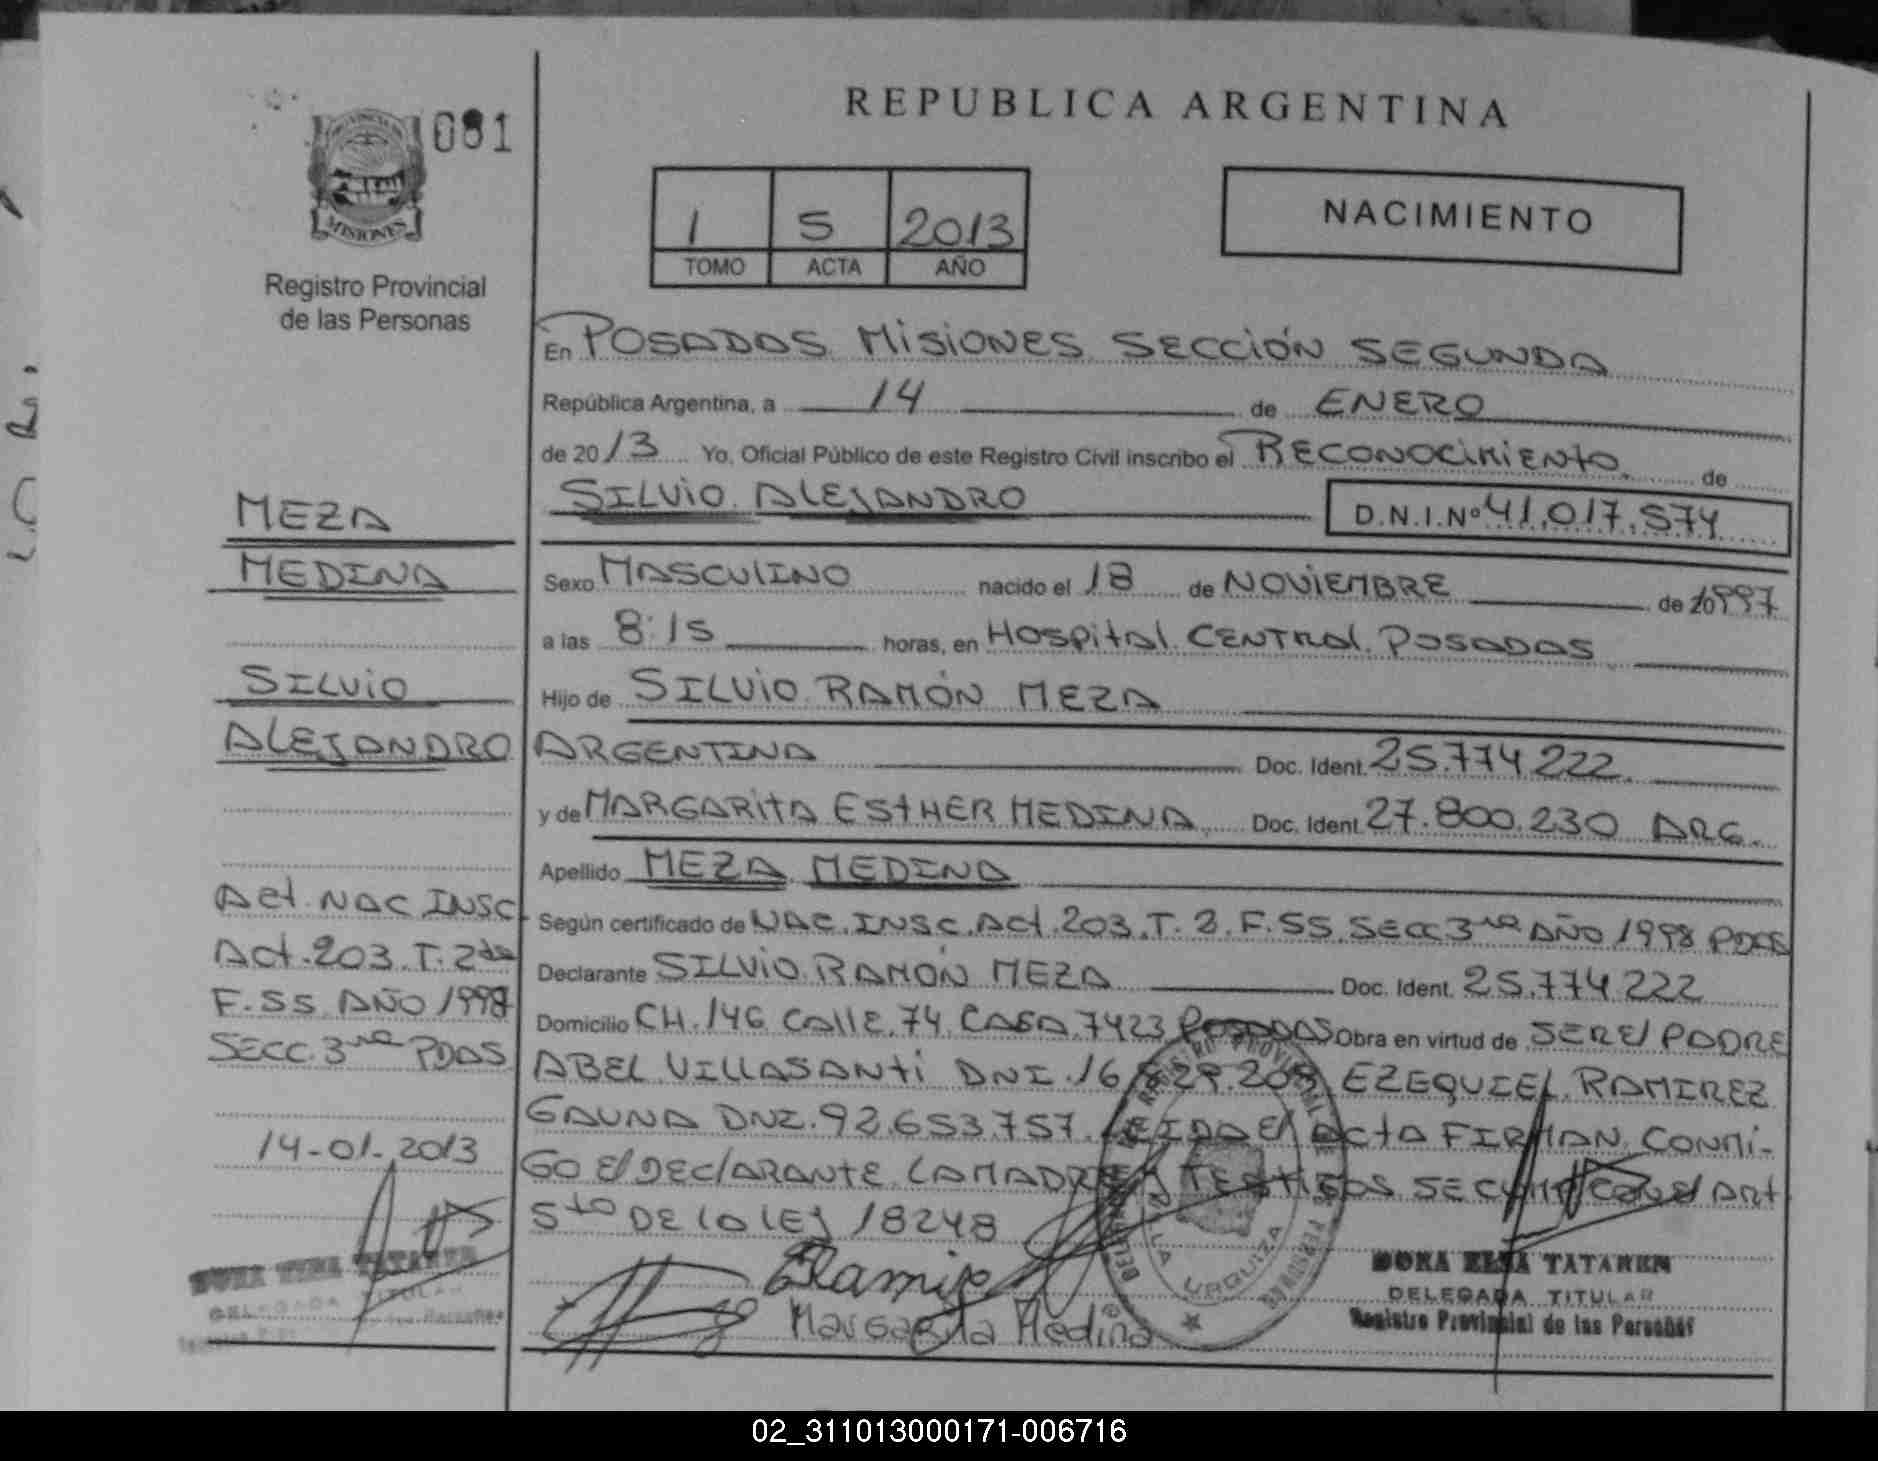 081
PROVINCIA DE
MISIONES
Registro Provincial
de las Personas
REPUBLICA ARGENTINA
1 5 2013
TOMO ACTA AÑO
NACIMIENTO
En POSADAS MISIONES SECCIÓN SEGUNDA
República Argentina, a 14 de ENERO
de 2013 Yo, Oficial Público de este Registro Civil inscribo el RECONOCIMIENTO de
SILVIO ALEJANDRO D.N.I.Nº 41.017.574
Sexo MASCULINO nacido el 18 de NOVIEMBRE de 1997
a las 8:15 horas, en HOSPITAL CENTRAL POSADAS
Hijo de SILVIO RAMÓN MEZA
ARGENTINA Doc. Ident. 25.774.222
y de MARGARITA ESTHER MEDINA Doc. Ident. 27.800.230 ARG.
Apellido MEZA MEDINA
Según certificado de NAC. INSC. Act. 203. T. 2. F. 55. SECC 3ra AÑO 1998 PDAS
Declarante SILVIO RAMÓN MEZA Doc. Ident. 25.774.222
Domicilio CH. 146 CALLE 74 CASA 7423 POSADAS Obra en virtud de SER EL PADRE
ABEL VILLASANTI DNI. 16 EZEQUIEL RAMIREZ
GAUNA DNI. 92.653.757. LEIDA El ACTA FIRMAN CONMI-
GO El DECLARANTE LA MADRE TESTIGOS SE CON El ART
5to DE LA LEY 18248
MEZA
MEDINA
SILVIO
ALEJANDRO
Act. NAC INSC
Act. 203 T. 2da
F. 55 AÑO 1998
SECC. 3ra PDAS
14-01-2013
DORA ELSA TATAREN
DELEGADA TITULAR
Ramirez
Margarita Medina
URQUIZA
DORA ELSA TATAREN
DELEGADA TITULAR
Registro Provincial de las Personas
02_311013000171-006716